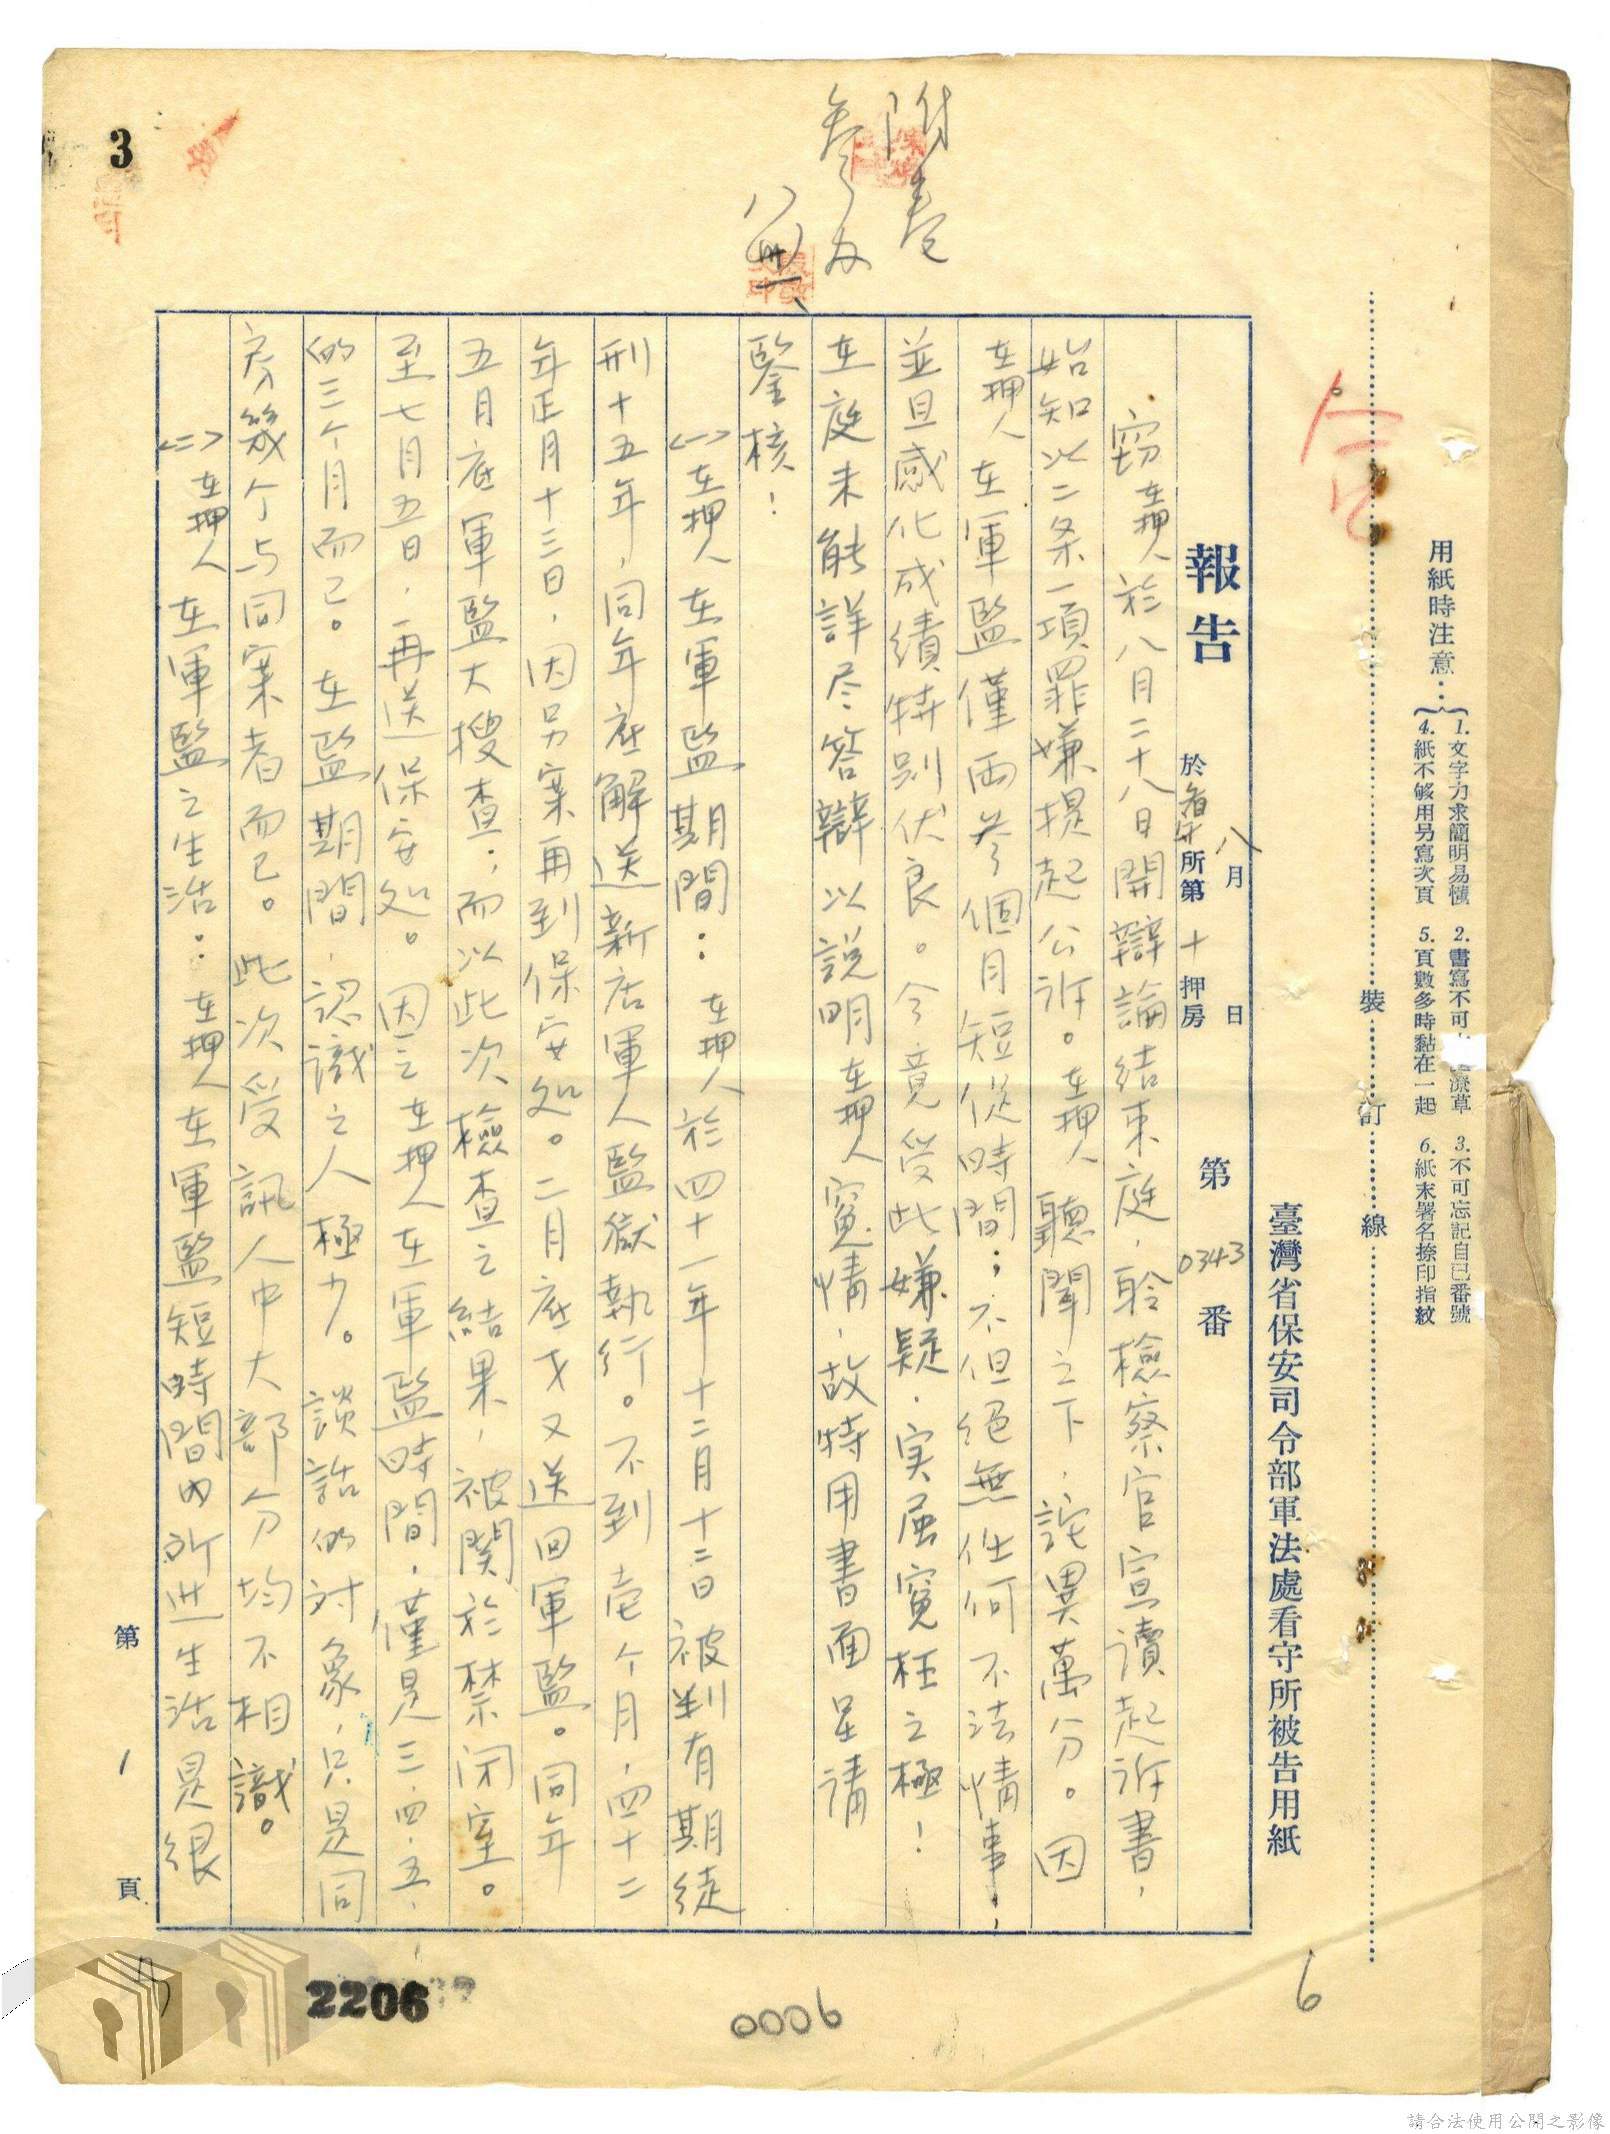 用紙時注意：
1. 文字力求簡明易懂
2. 書寫不可潦草
3. 不可忘記自己番號
4. 紙不够用另寫次頁
5. 頁數多時黏在一起
6. 紙末署名捺印指紋
裝訂線
臺灣省保安司令部軍法處看守所被告用紙
報告
八月 日
於看守所第十押房
第0343番
竊在押人於八月二十八日開辯論結束庭，聆檢察官宣讀起訴書，
始知以二条一項罪嫌提起公訴。在押人聽聞之下，詫異萬分。因
在押人在軍監僅兩叁個月短促時間；不但絕無任何不法情事，
並且感化成績特別伏良。今竟受此嫌疑，実屈寃枉之極！
在庭未能詳尽答辯以說明在押人寃情，故特用書面呈請
鑒核！
<一>在押人在軍監期間：在押人於四十一年十二月十二日被判有期徒
刑十五年，同年底解送新店軍人監獄執行。不到壱个月，四十二
年正月十三日，因另案再到保安処。二月底才又送回軍監。同年
五月底軍監大搜查；而以此次檢查之結果，被関於禁闭室。
至七月五日，再送保安処。因之在押人在軍監時間，僅是三、四、五、
的三个月而已。在監期間，認識之人極少。談話的対象，只是同
房幾个与同案者而已。此次受訊人中大部分均不相識。
<二>在押人在軍監之生活：在押人在軍監短時間内所進生活是很
第1頁
附卷
參攷
八卅一、
3
6
2206
0006
請合法使用公開之影像